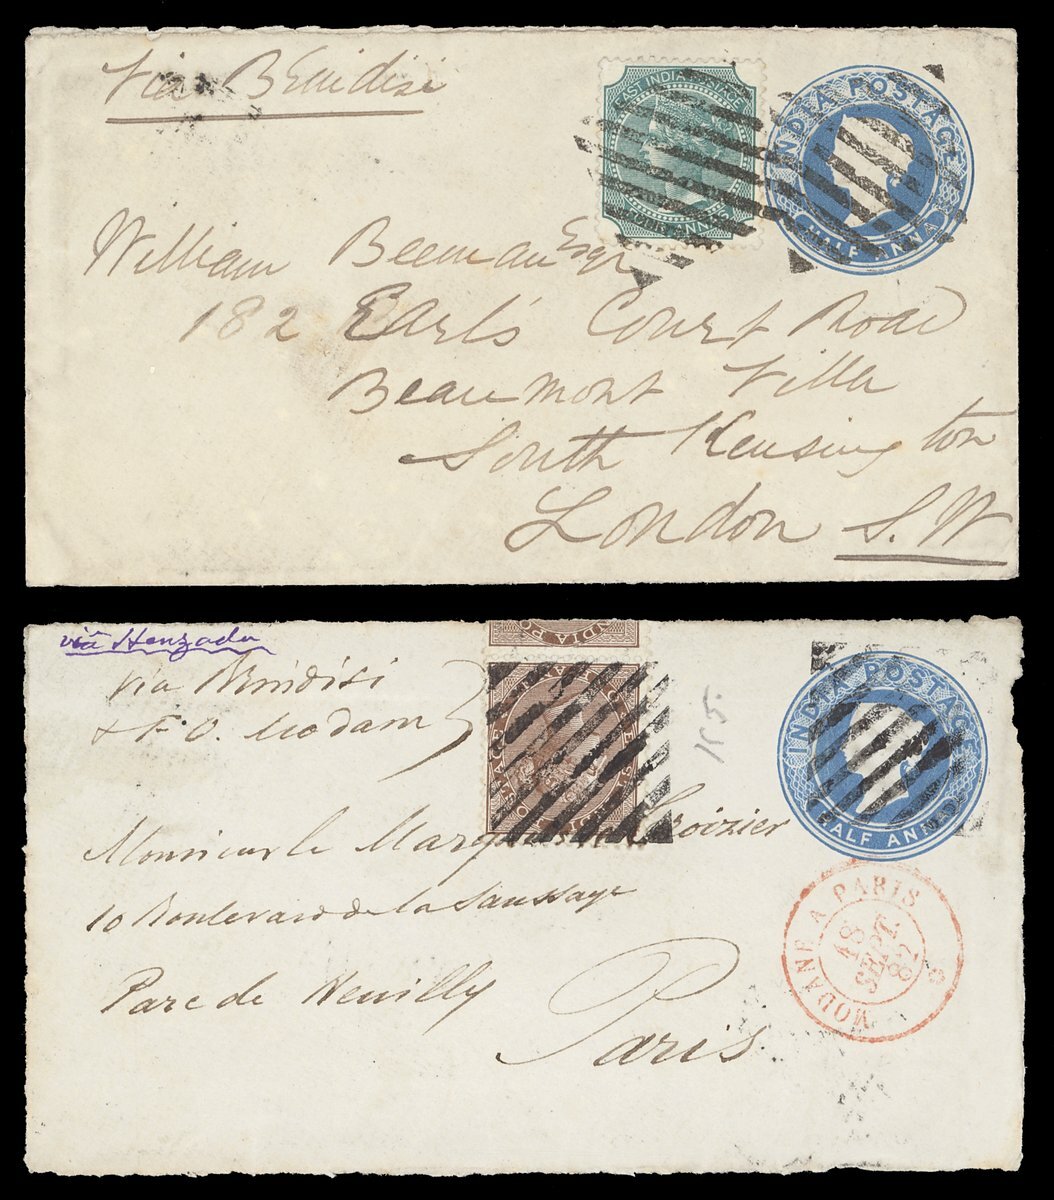 Via Brindisi
EAST INDIA POSTAGE
FOUR ANNAS
INDIA POSTAGE
HALF ANNA
William Beeman Esqr
182 Earl's Court Road
Beaumont Villa
South Kensington
London S.W
viâ Henzada
via Brindisi
& F.O. Modam
INDIA PO
INDIA POSTAGE
HALF ANNA
Monsieur le Marquis de Croizier
10 Boulevard de la Saussaye
Parc de Neuilly
Paris
MODANE A PARIS
18
SEPT.
82